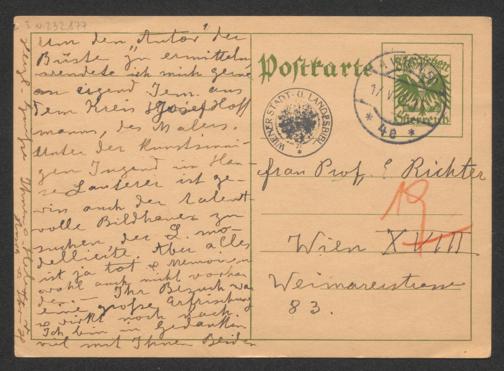 I.N. 232.877
Um den "Autor" der
Büste zu ermitteln
wendete ich mich gerne
an irgend Jem. aus
dem Kreis Josef Hoff
manns, des Malers.
Unter der Kunstsinni-
gen Jugend in Hau-
se Lauterer ist ge-
wiss auch der talent
volle Bildhauer zu
suchen, der L. mo-
dellierte. Aber alles
ist ja tot & Memoiren
wohl auch nicht vorhan
den. — Ihr Besuch war
eine große Erfrischung
& wirkt noch nach.
Ich bin in Gedanken
viel mit Ihnen Beiden
Postkarte
Österreich
WIENER STADT- U. LANDESBIBL.
* 4e *
Frau Prof. E. Richter
19
Wien XVIII
Weimarerstrasse
83.